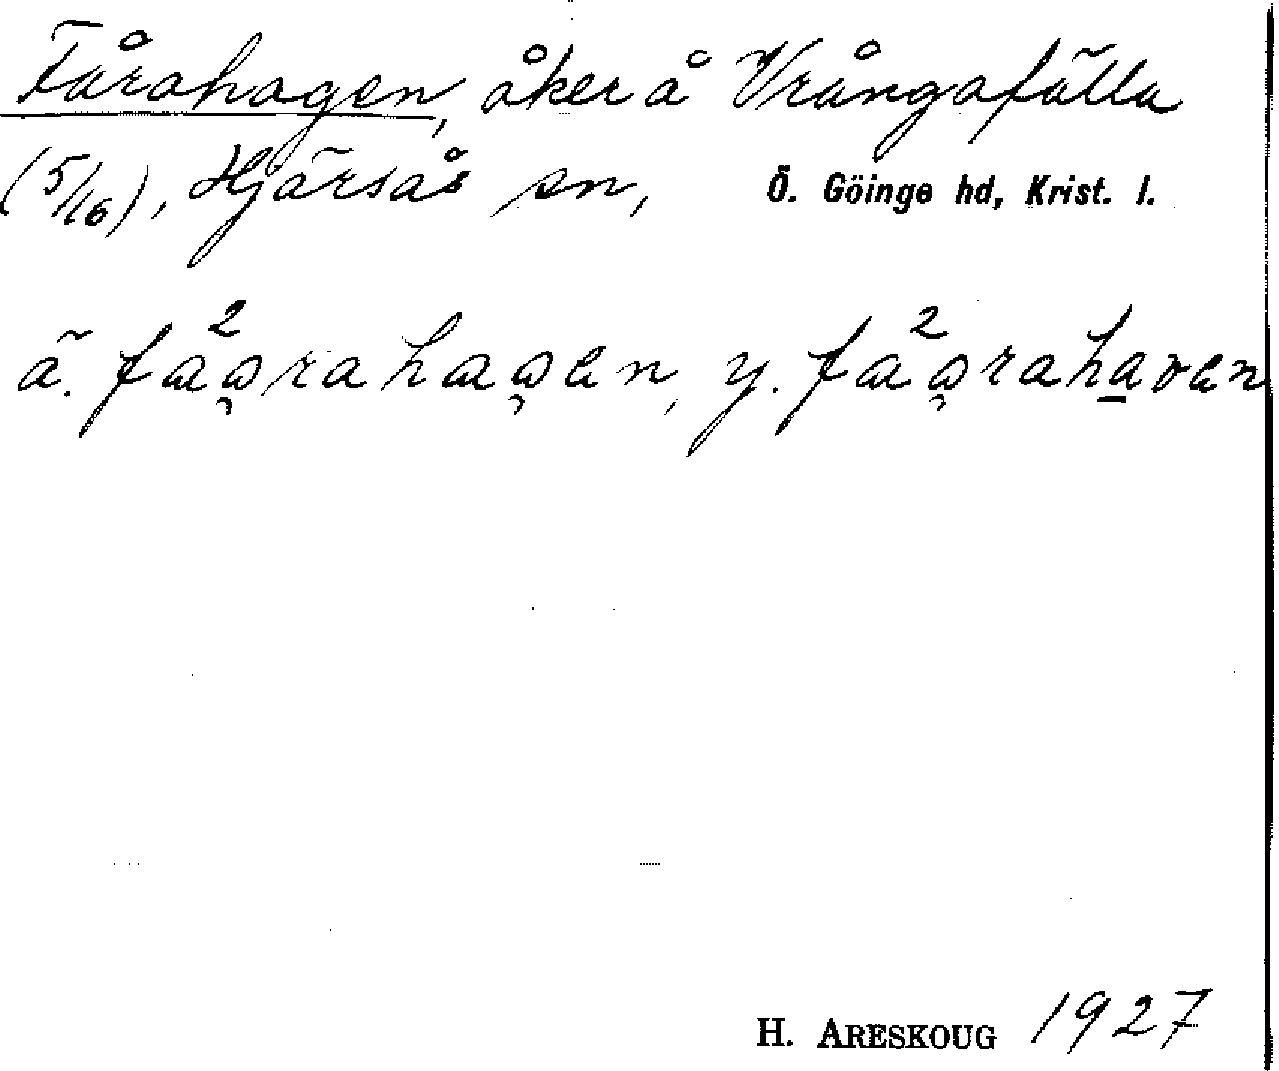 Fårahagen, åker å Vrångafälla
(5/16), Hjärsås sn, Ö. Göinge hd, Krist. l.
ä. fa²o̡rahao̡en, y. fa²o̡raha̲ven
H. ARESKOUG 1927